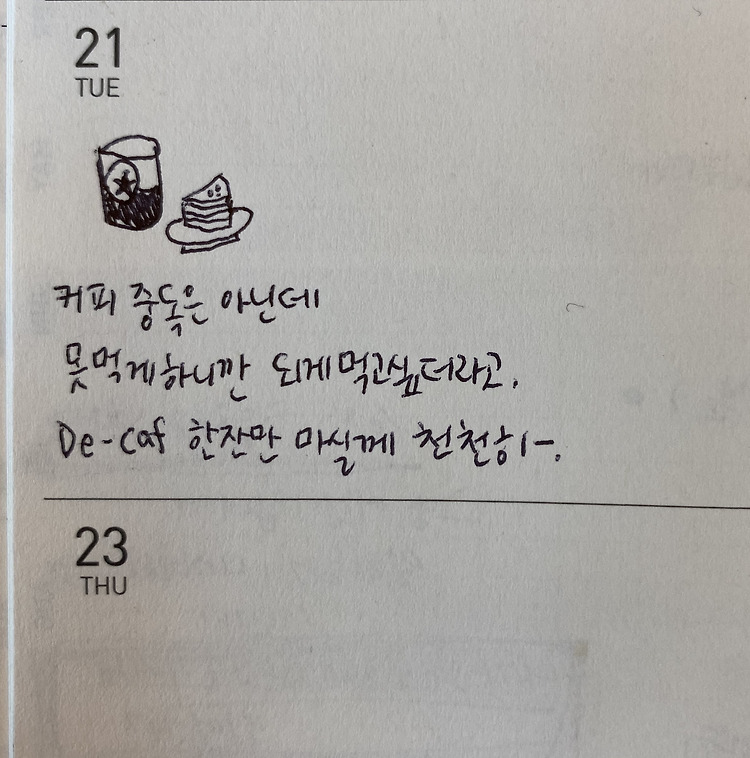 21
TUE
커피 중독은 아닌데
못먹게하니깐 되게먹고싶더라고.
De-caf 한잔만 마실께 천천히-.
23
THU